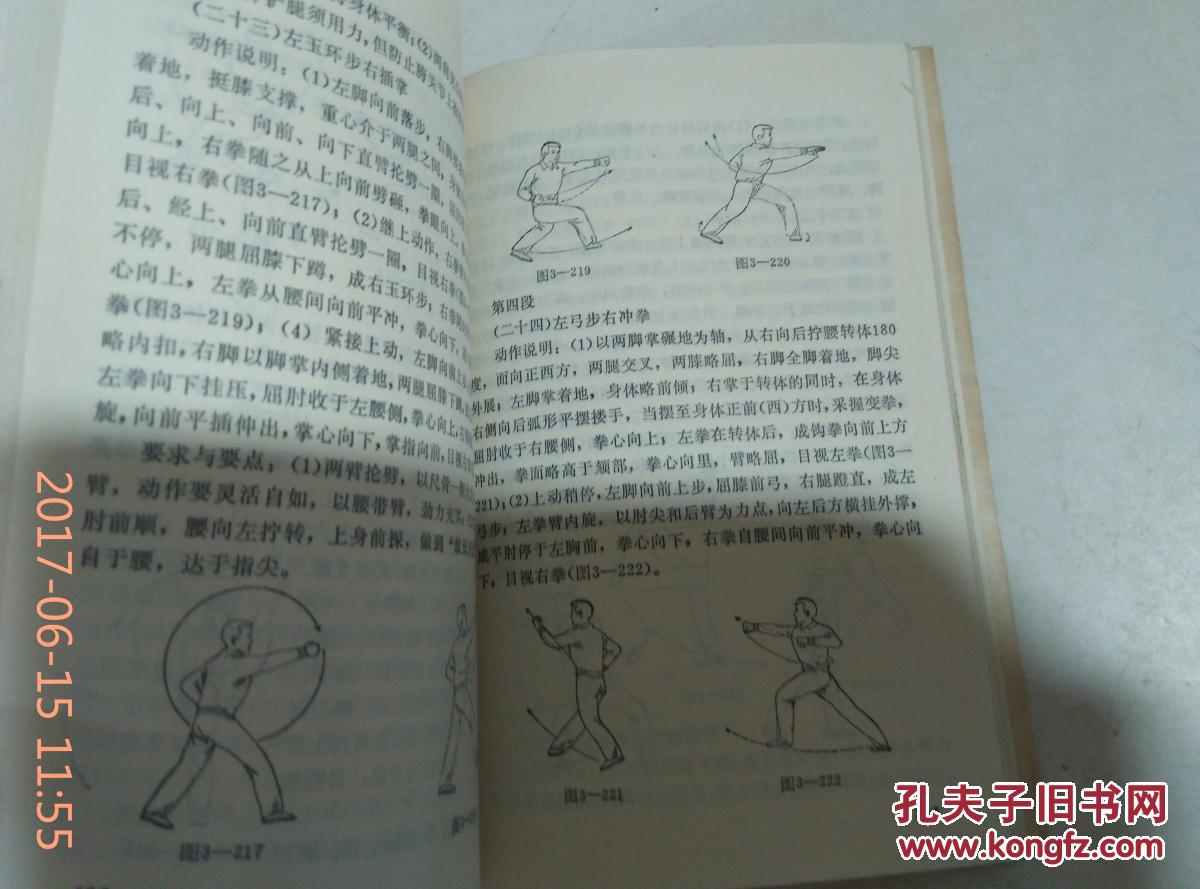 身体平衡；(2)两
腿须用力，但防止胯关节上
(二十三)左玉环步右插掌
动作说明：(1)左脚向前落步，右脚
着地，挺膝支撑，重心介于两腿之间，
后、向上、向前、向下直臂抡劈一圈，
向上，右拳随之从上向前劈砸，拳眼向上，
目视右拳(图3—217)；(2)继上动作，右拳
后、经上、向前直臂抡劈一圈，目视右拳
不停，两腿屈膝下蹲，成右玉环步；右拳
心向上，左拳从腰间向前平冲，拳心向下，
拳(图3—219)；(4)紧接上动，左脚向前上
略内扣，右脚以脚掌内侧着地，两腿屈膝下蹲
左拳向下挂压，屈肘收于左腰侧，拳心向上；右
旋，向前平插伸出，掌心向下，掌指向前，目视
要求与要点：(1)两臂抡劈，以尺骨一侧
臂，动作要灵活自如，以腰带臂，劲力充实，
肘前顺，腰向左拧转，上身前探，做到“
自于腰，达于指尖。
图3—217
图3—219
图3—220
第四段
(二十四)左弓步右冲拳
动作说明：(1)以两脚掌碾地为轴，从右向后拧腰转体180
度，面向正西方，两腿交叉，两膝略屈，右脚全脚着地，脚尖
外展；左脚掌着地，身体略前倾；右掌于转体的同时，在身体
右侧向后弧形平摆搂手，当摆至身体正前(西)方时，采握变拳，
屈肘收于右腰侧，拳心向上；左拳在转体后，成钩拳向前上方
冲出，拳面略高于颏部，拳心向里，臂略屈，目视左拳(图3—
221)；(2)上动稍停，左脚向前上步，屈膝前弓，右腿蹬直，成左
弓步；左拳臂内旋，以肘尖和后臂为力点，向左后方横挂外撑，
成平肘停于左胸前，拳心向下，右拳自腰间向前平冲，拳心向
下，目视右拳(图3—222)。
图3—221
图3—222
2017-06-15 11:55
孔夫子旧书网
www.kongfz.com